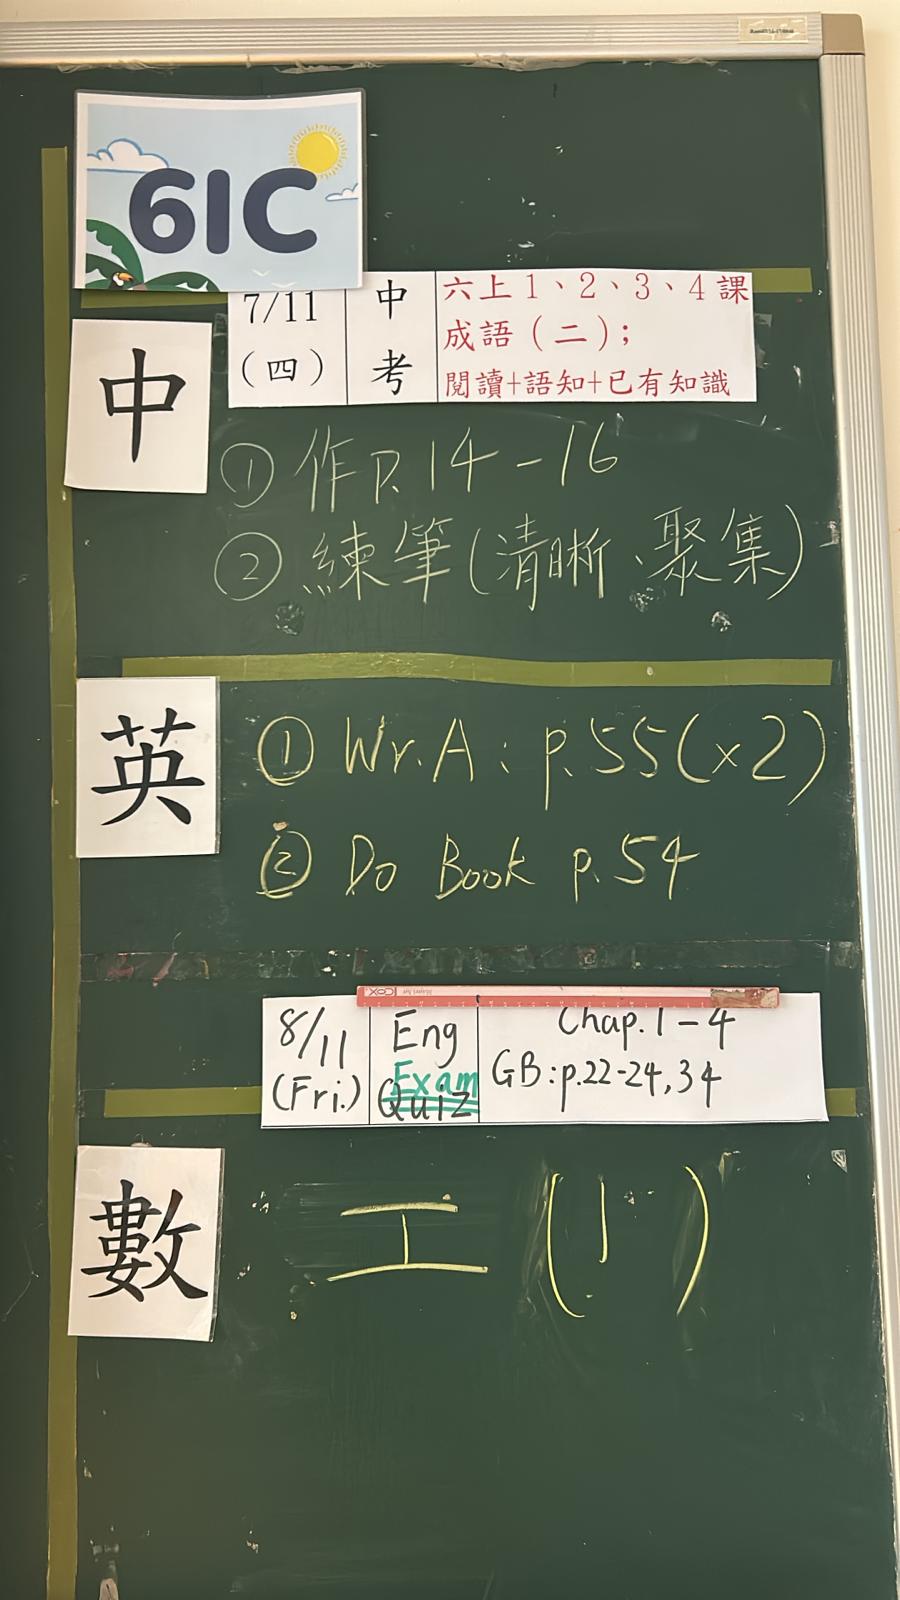 61C
中
7/11
(四)
中
考
六上1、2、3、4課
成語(二);
閱讀+語知+已有知識
① 作P.14-16
② 練筆(清晰、聚集)
英
① Wr.A: p.55(×2)
② Do Book p.54
8/11
(Fri.)
Eng
Exam
Quiz
Chap.1-4
GB:p.22-24,34
數
工(1)